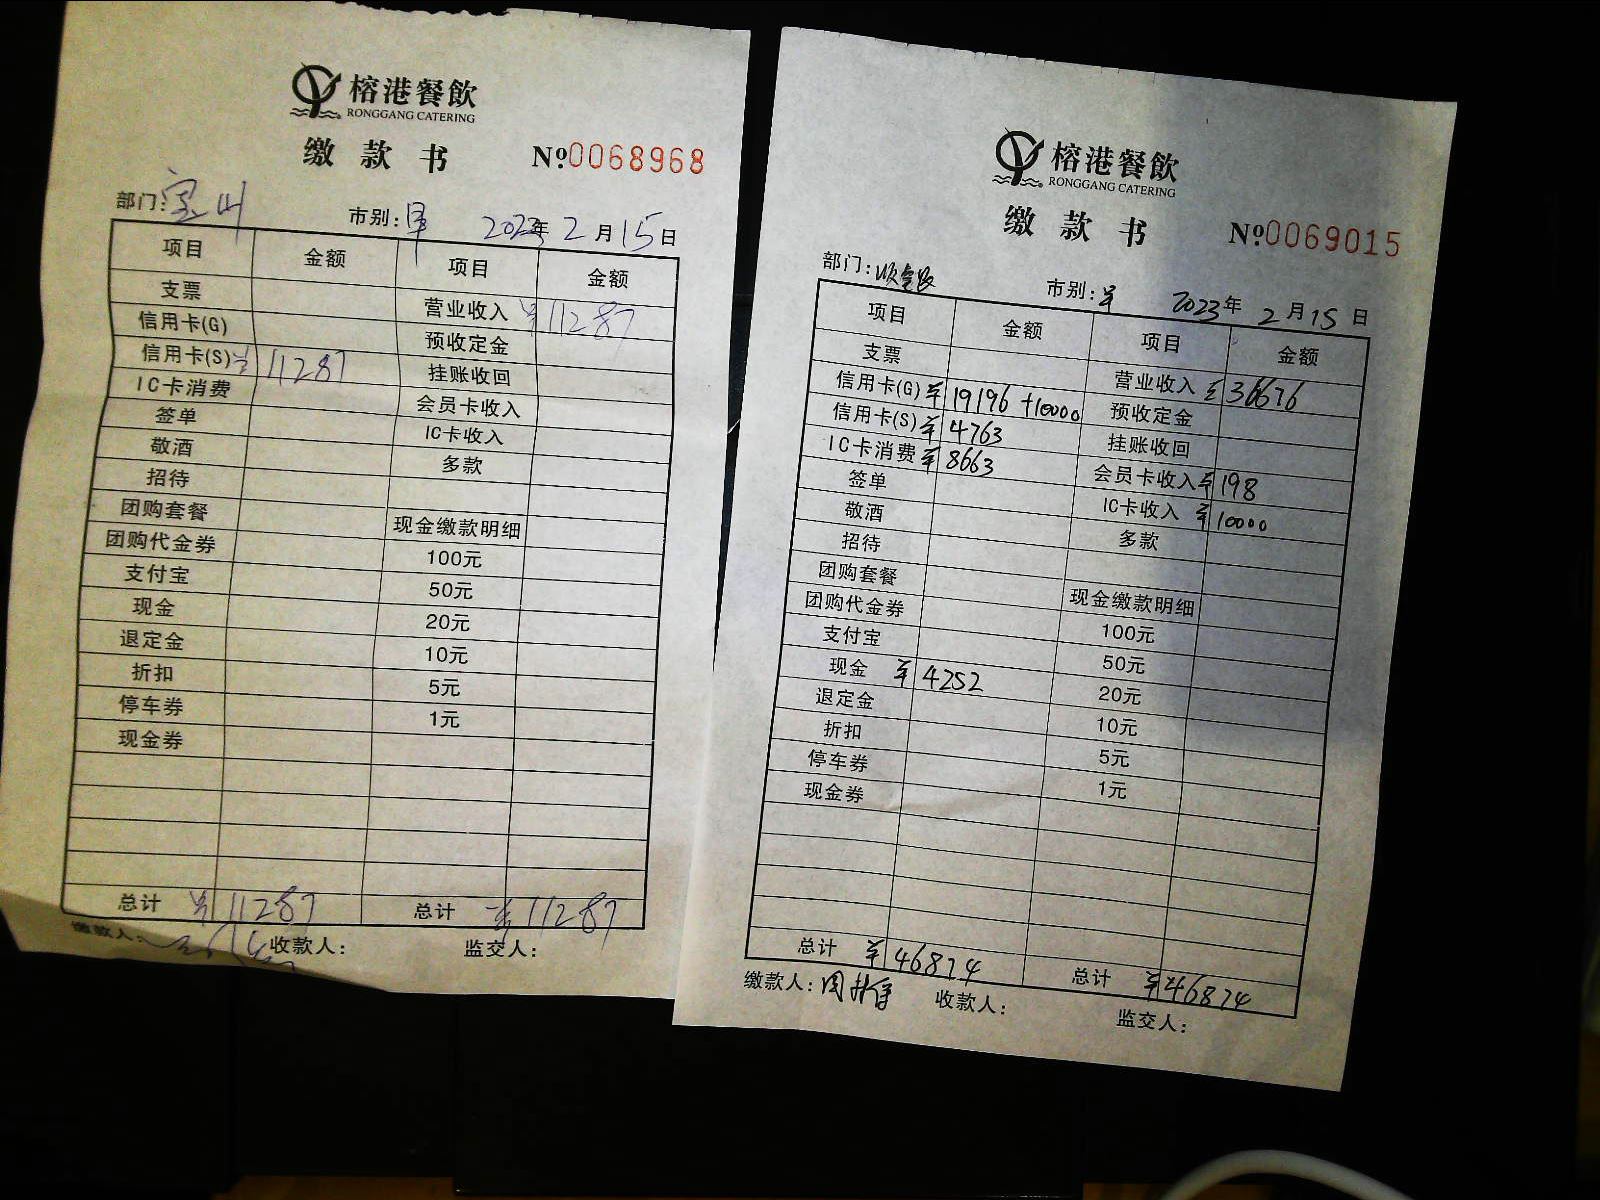 榕港餐飲
RONGGANG CATERING
缴款书 №0068968
部门: 宝山 市别: 早 2023年2月15日
项目 金额 项目 金额
支票 营业收入 ¥11287
信用卡(G) 预收定金
信用卡(S) ¥11287 挂账收回
IC卡消费 会员卡收入
签单 IC卡收入
敬酒 多款
招待
团购套餐 现金缴款明细
团购代金券 100元
支付宝 50元
现金 20元
退定金 10元
折扣 5元
停车券 1元
现金券
总计 ¥11287 总计 ¥11287
缴款人: 收款人: 监交人:
榕港餐飲
RONGGANG CATERING
缴款书 №0069015
部门: 市别: 早 2023年2月15日
项目 金额 项目 金额
支票 营业收入 ¥36676
信用卡(G) ¥19196+10000 预收定金
信用卡(S) ¥4763 挂账收回
IC卡消费 ¥8663 会员卡收入 ¥198
签单 IC卡收入 ¥10000
敬酒 多款
招待
团购套餐 现金缴款明细
团购代金券 100元
支付宝 50元
现金 ¥4252 20元
退定金 10元
折扣 5元
停车券 1元
现金券
总计 ¥46874 总计 ¥46874
缴款人: 收款人: 监交人: